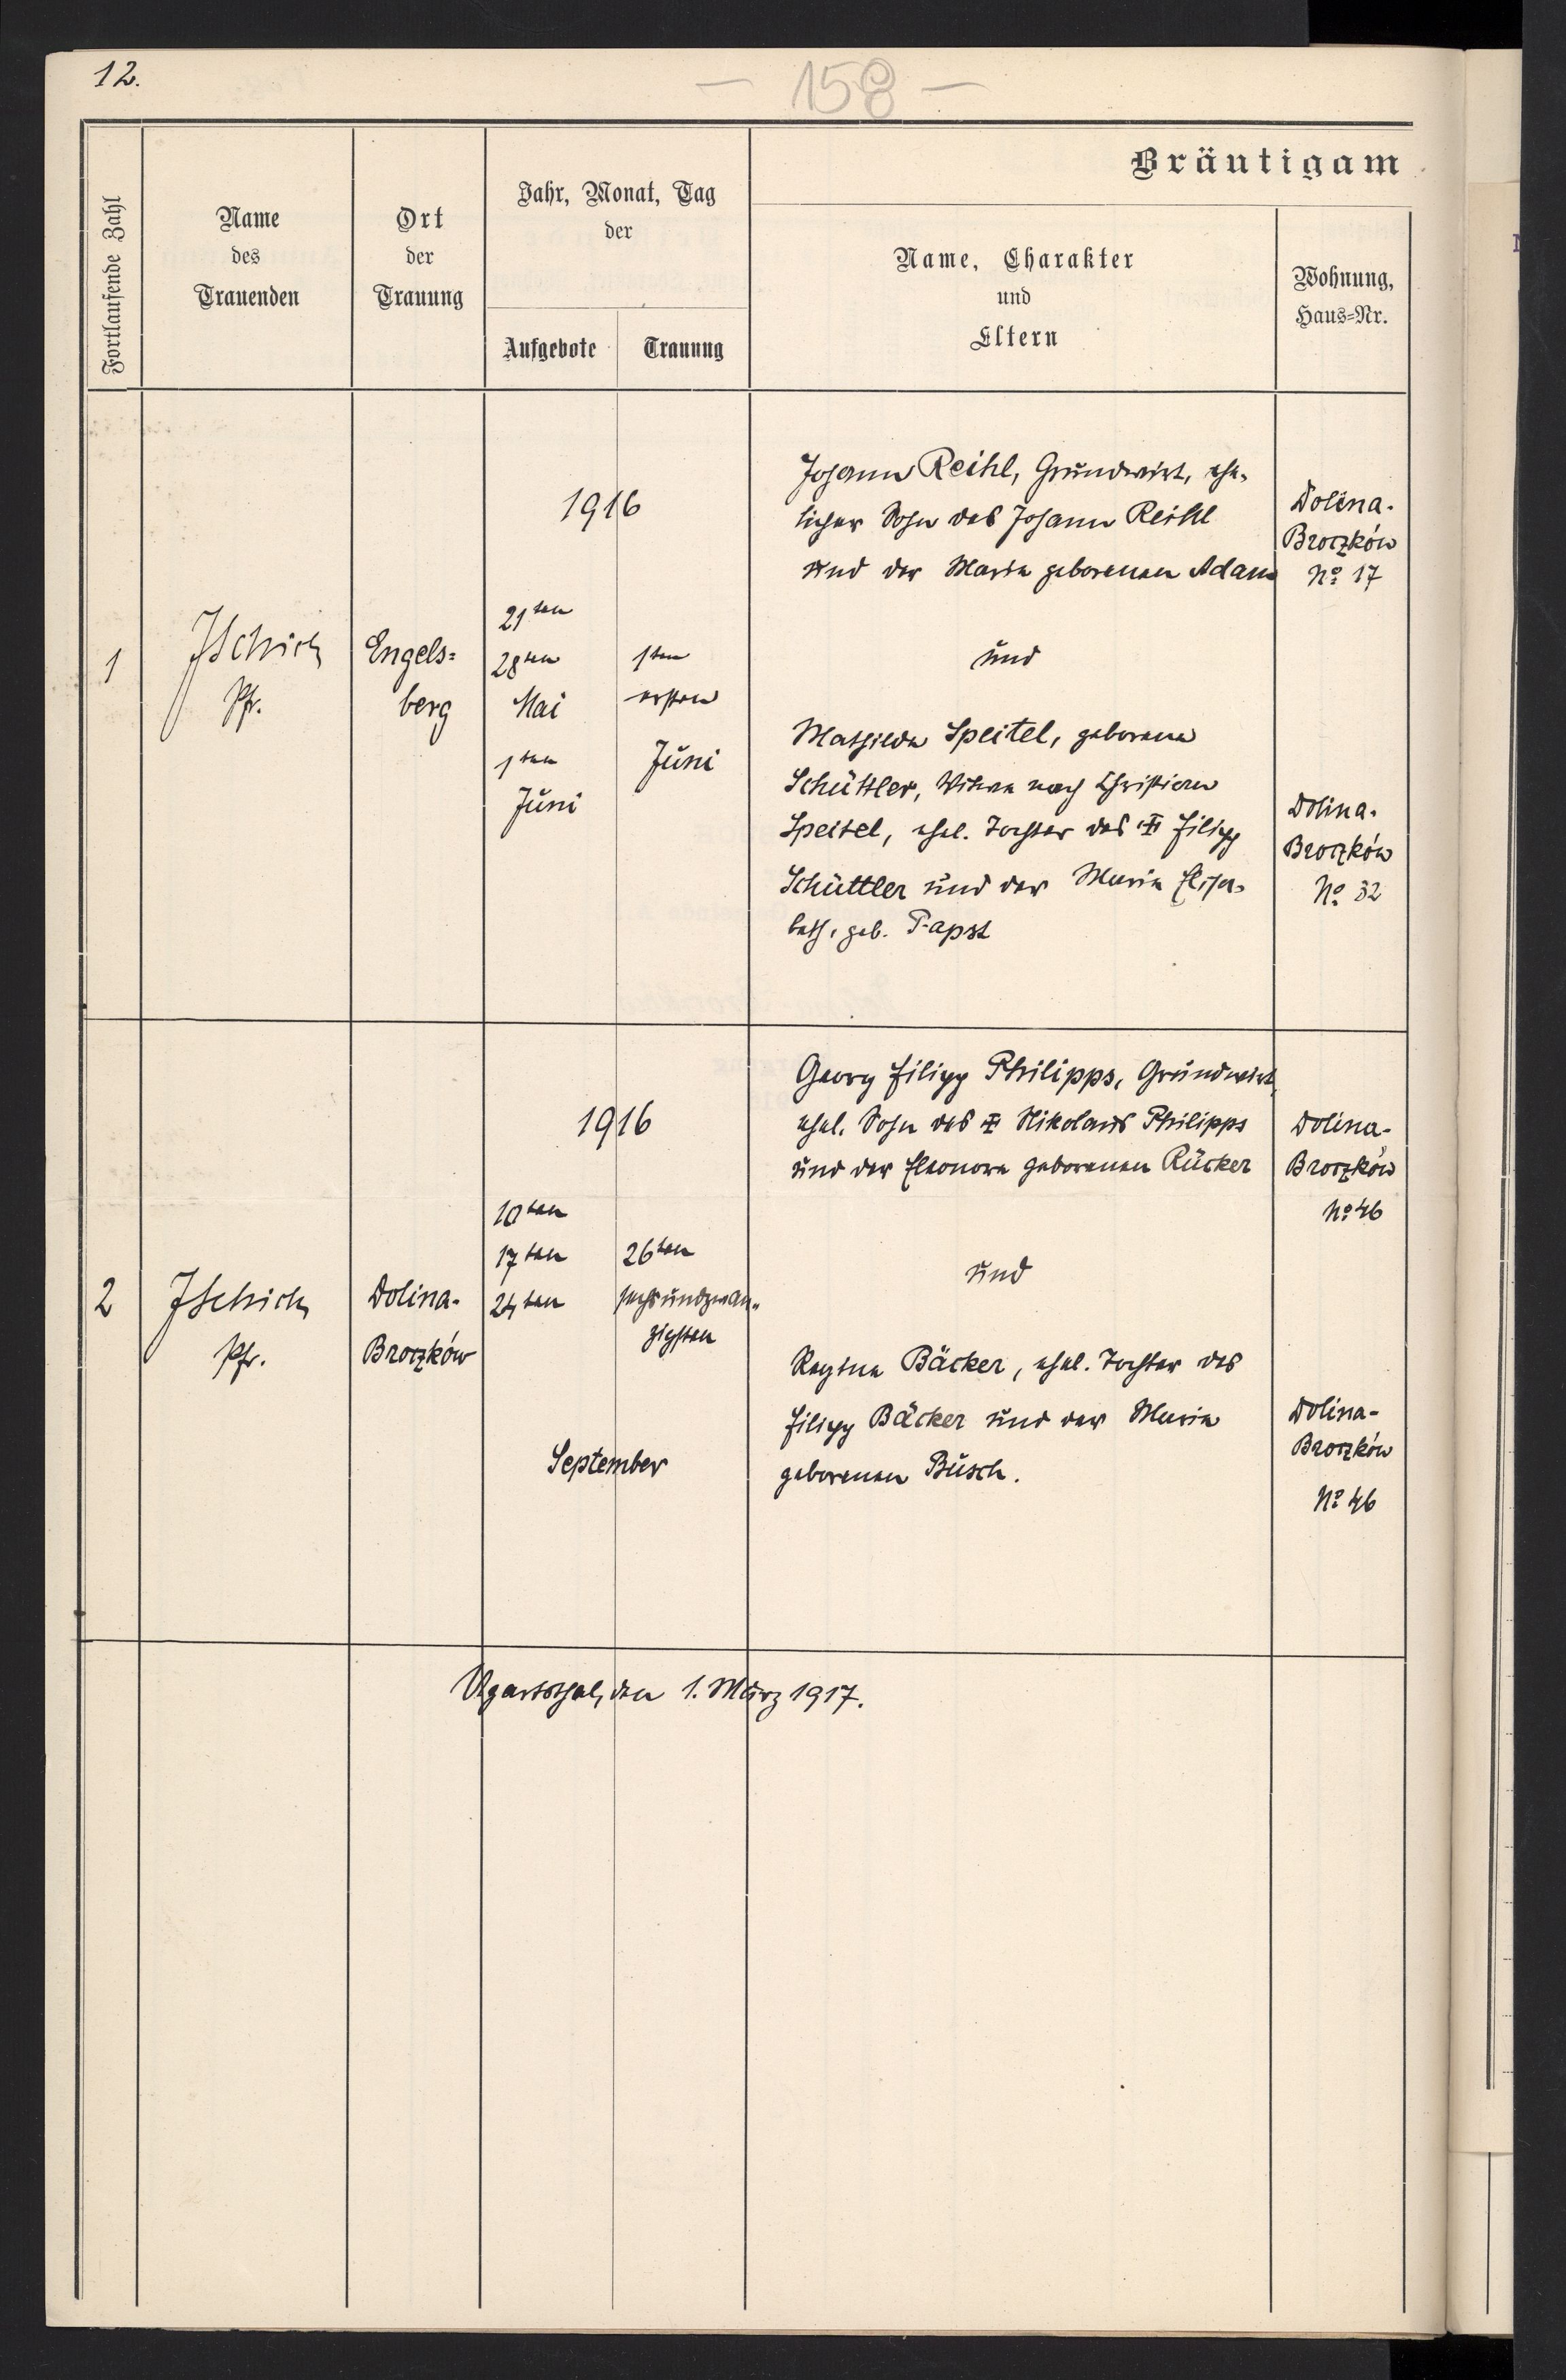 12.
— 158 —
Bräutigam
Fortlaufende Zahl
Name
des
Trauenden
Ort
der
Trauung
Jahr, Monat, Tag
der
Aufgebote
Trauung
Name, Charakter
und
Eltern
Wohnung,
Haus-Nr.
1
JSchick
Pfr.
Engels=
berg
1916
21ten
28ten
Mai
1ten
Juni
1ten
ersten
Juni
Johann Reihl, Grundwirt, ehe-
licher Sohn des Johann Reihl
und der Maria geborenen Adam
und
Mathilde Speitel, geborene
Schüttler, Witwe nach Christian
Speitel, ehel. Tochter des ‡ Filipp
Schüttler und der Maria Elisa-
beth, geb. Papst
Dolina-
Broczków
No 17
Dolina-
Broczków
No 32
2
JSchick
Pfr.
Dolina-
Broczków
1916
10ten
17ten
24ten
26ten
sechsundzwan-
zigsten
September
Georg Filipp Philipps, Grundwirt,
ehel. Sohn des ‡ Nikolaus Philipps
und der Eleonore geborenen Rücker
und
Regina Bäcker, ehel. Tochter des
Filipp Bäcker und der Maria
geborenen Busch.
Dolina-
Broczków
No 46
Dolina-
Broczków
No 46
Ugartsthal, den 1. März 1917.